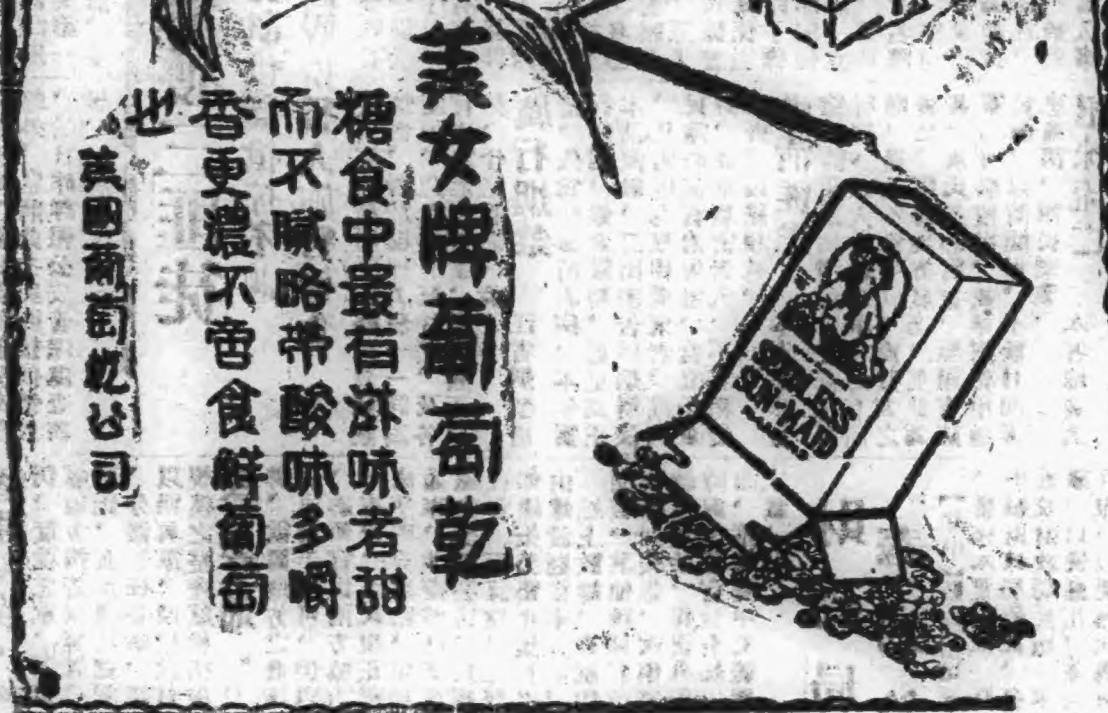 美女牌葡萄乾
糖食中最有滋味者甜
而不膩略帶酸味多嚼
香更濃不啻食鮮葡萄
也
美國葡萄乾公司
SEEDLESS
SUN-MAID